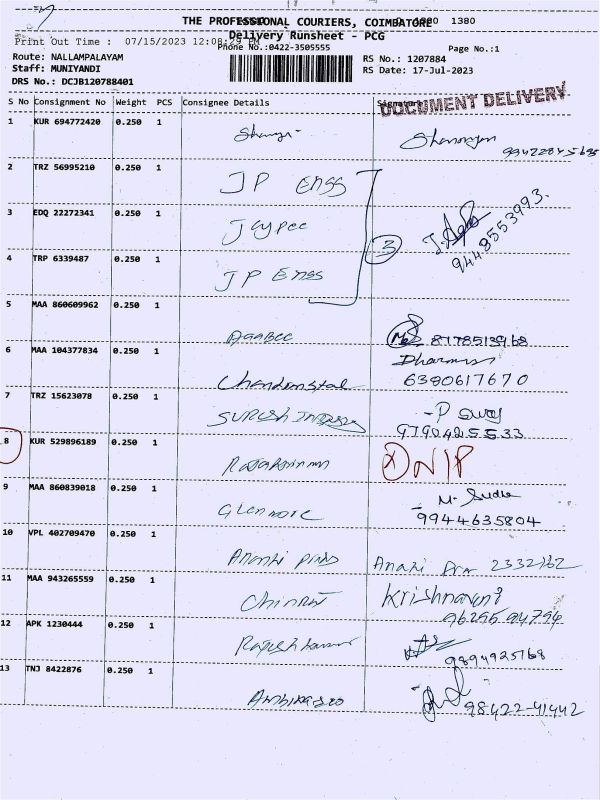 THE PROFESSIONAL COURIERS, COIMBATORE 1380
Delivery Runsheet - PCG
Print Out Time : 07/15/2023
Phone No.:0422-3505555 Page No.:1
Route: NALLAMPALAYAM RS No.: 1207884
Staff: MUNIYANDI RS Date: 17-Jul-2023
DRS No.: DCJB120788401
DOCUMENT DELIVERY
S No Consignment No Weight PCS Consignee Details Signature
1 KUR 694772420 0.250 1
2 TRZ 56995210 0.250 1 JP Engg
3 EDQ 22272341 0.250 1 Jaypee 3 9443553993
4 TRP 6339487 0.250 1 JP Engg
5 MAA 860609962 0.250 1 8778513968
6 MAA 104377834 0.250 1 6380617670
7 TRZ 15623078 0.250 1 SURESH 9790425533
8 KUR 529896189 0.250 1 X N/P
9 MAA 860839018 0.250 1 Glenmore M. Sudha 9944635804
10 VPL 402709470 0.250 1 2332762
11 MAA 943265559 0.250 1 Chinraj Krishnaveni 96295 94794
12 APK 1230444 0.250 1 Rajeshkumar 9894925768
13 TNJ 8422876 0.250 1 98422-41442